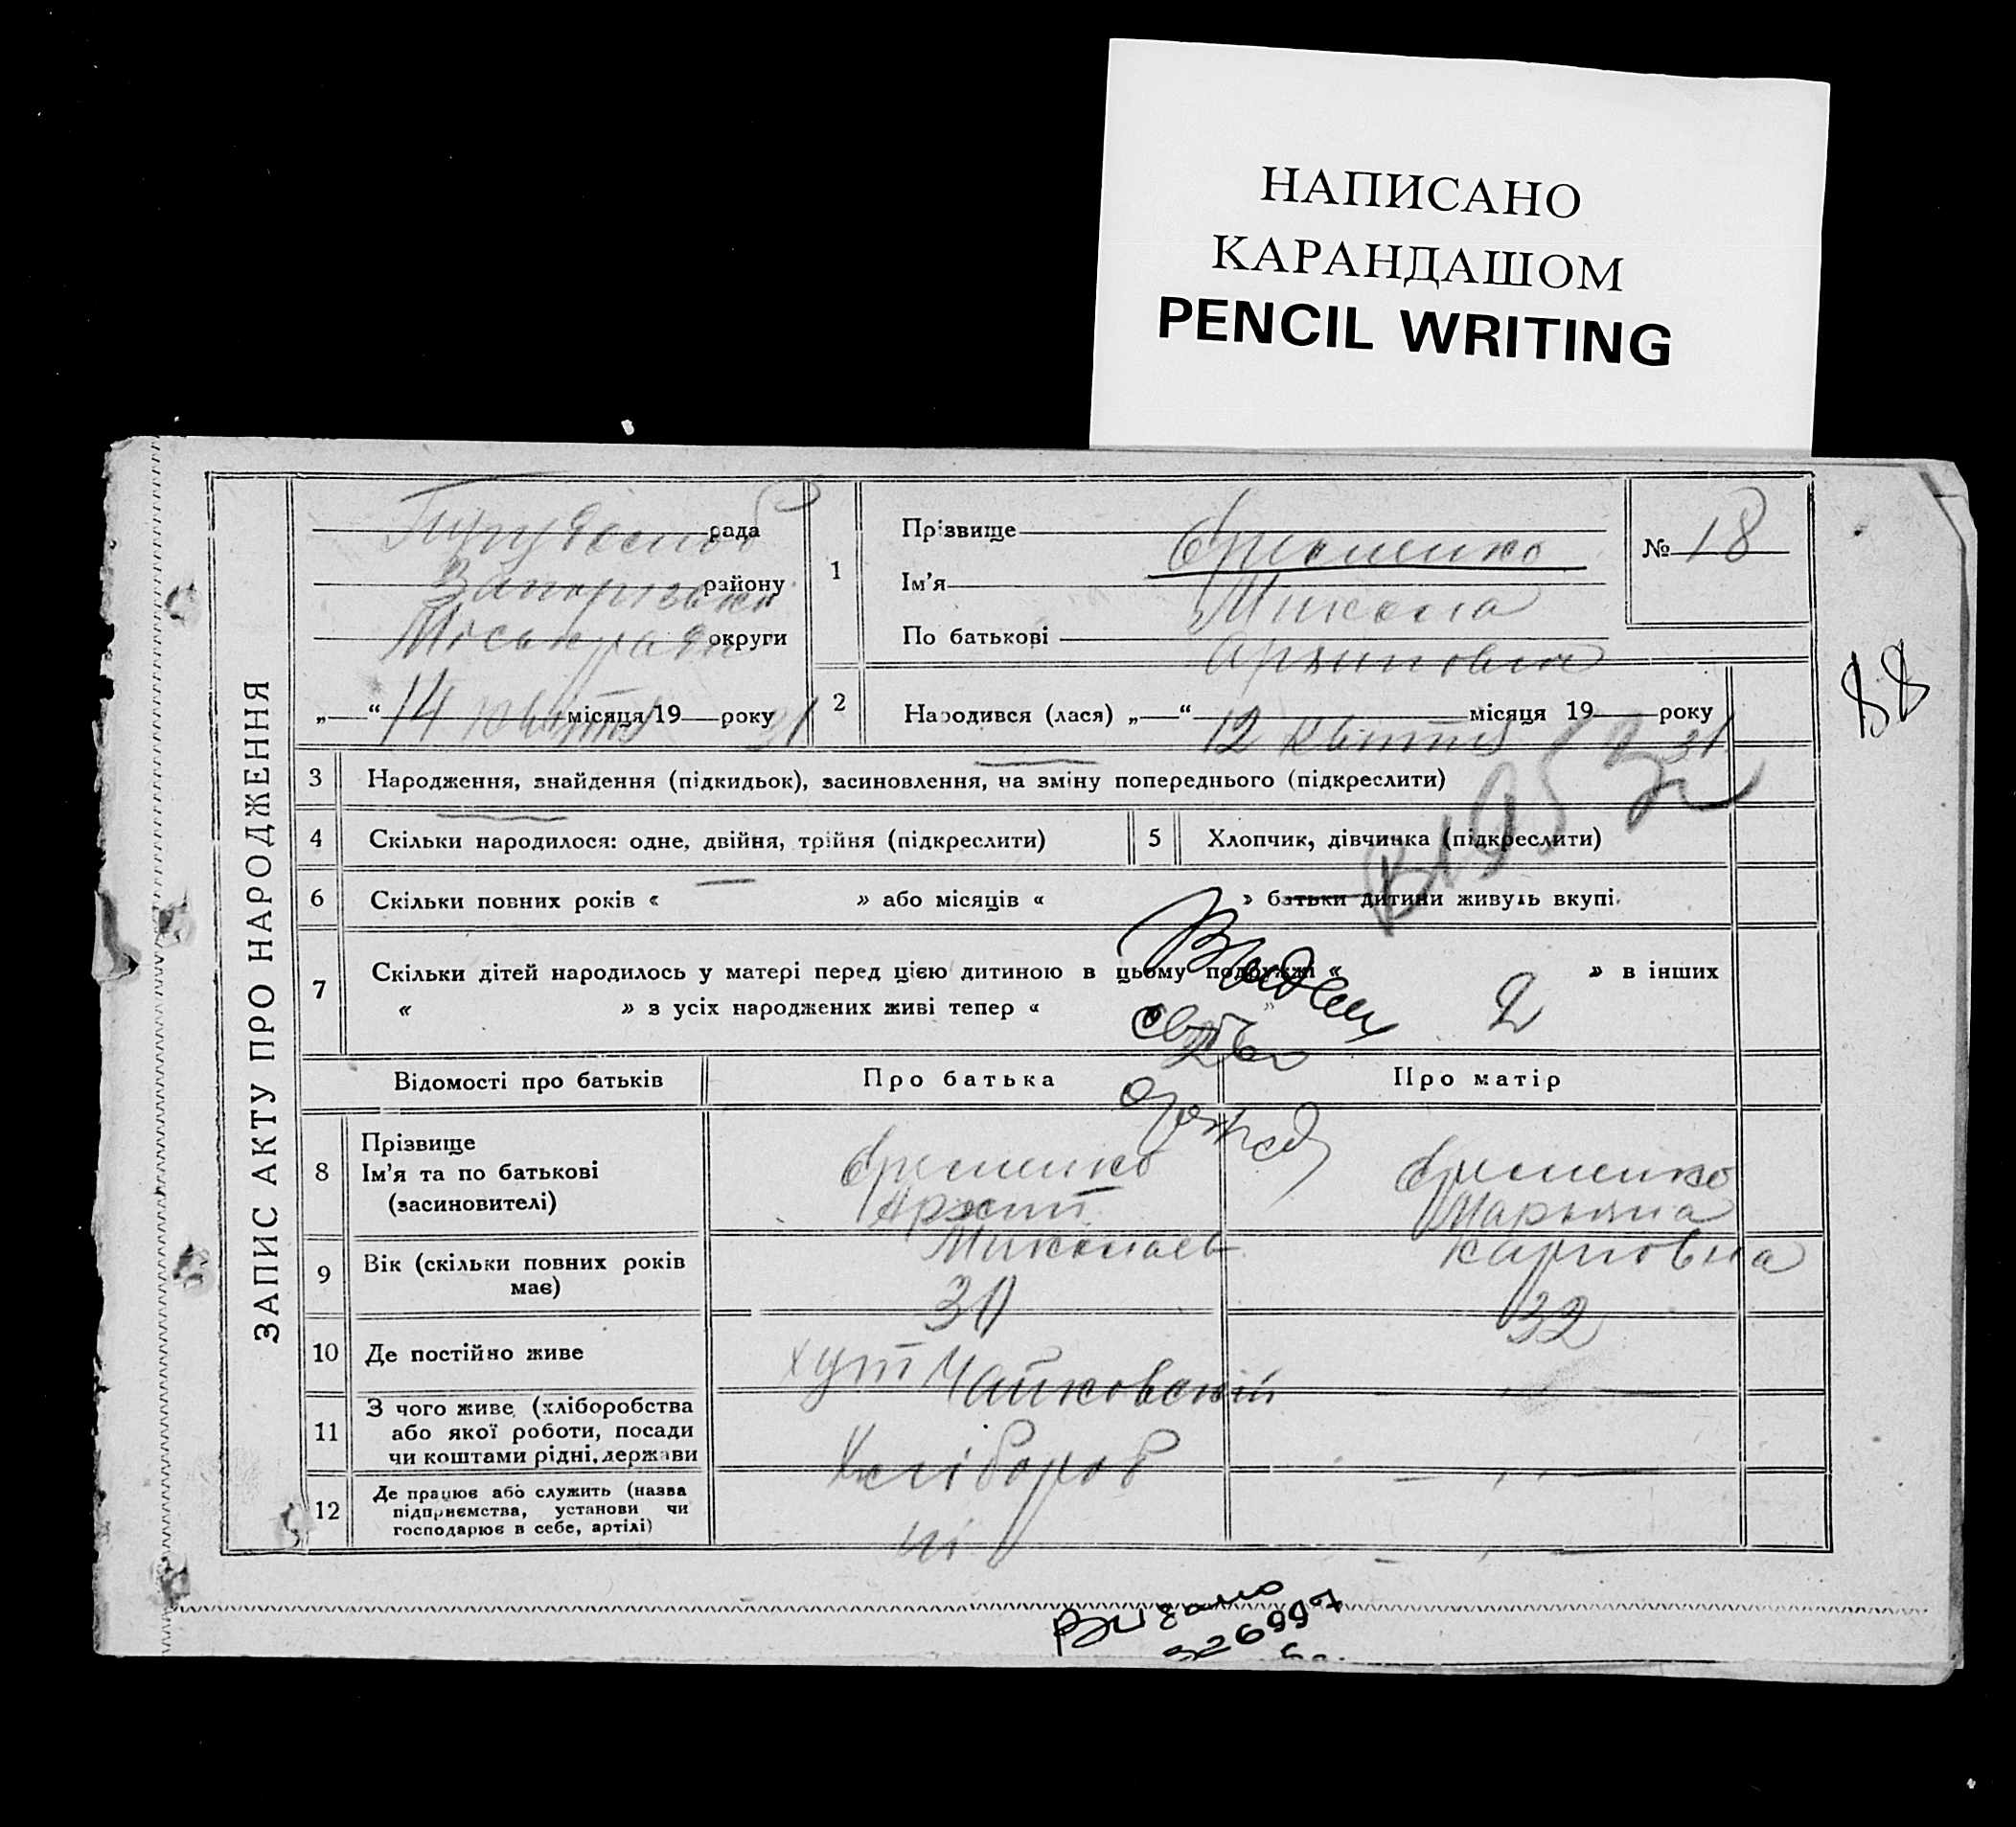 НАПИСАНО
КАРАНДАШОМ
PENCIL WRITING
ЗАПИС АКТУ ПРО НАРОДЖЕННЯ
рада
району
Міськради округи
„ “ 14 квітня місяця 19 31 року
1
Прізвище Єременко
Ім'я Микола
По батькові Архипович
№ 18
88
2
Народився (лася) „ “ 12 квітня місяця 19 31 року
3 Народження, знайдення (підкидьок), засиновлення, на зміну попереднього (підкреслити)
4 Скільки народилося: одне, двійня, трійня (підкреслити)
5 Хлопчик, дівчинка (підкреслити)
6 Скільки повних років « » або місяців « » батьки дитини живуть вкупі.
7 Скільки дітей народилось у матері перед цією дитиною в цьому подружжі « 2 » в інших
« » з усіх народжених живі тепер « »
Відомості про батьків
Про батька
Про матір
8 Прізвище
Ім'я та по батькові
(засиновителі)
Єременко
Архип
Миколаев
Єременко
Марьяна
Карповна
9 Вік (скільки повних років
має)
30
32
10 Де постійно живе
хут Чайковский
— „ —
11 З чого живе (хліборобства
або якої роботи, посади
чи коштами рідні, держави
Хлібороб
— „ —
12 Де працює або служить (назва
підприємства, установи чи
господарює в себе, артілі)
— „ —
Видано
326997